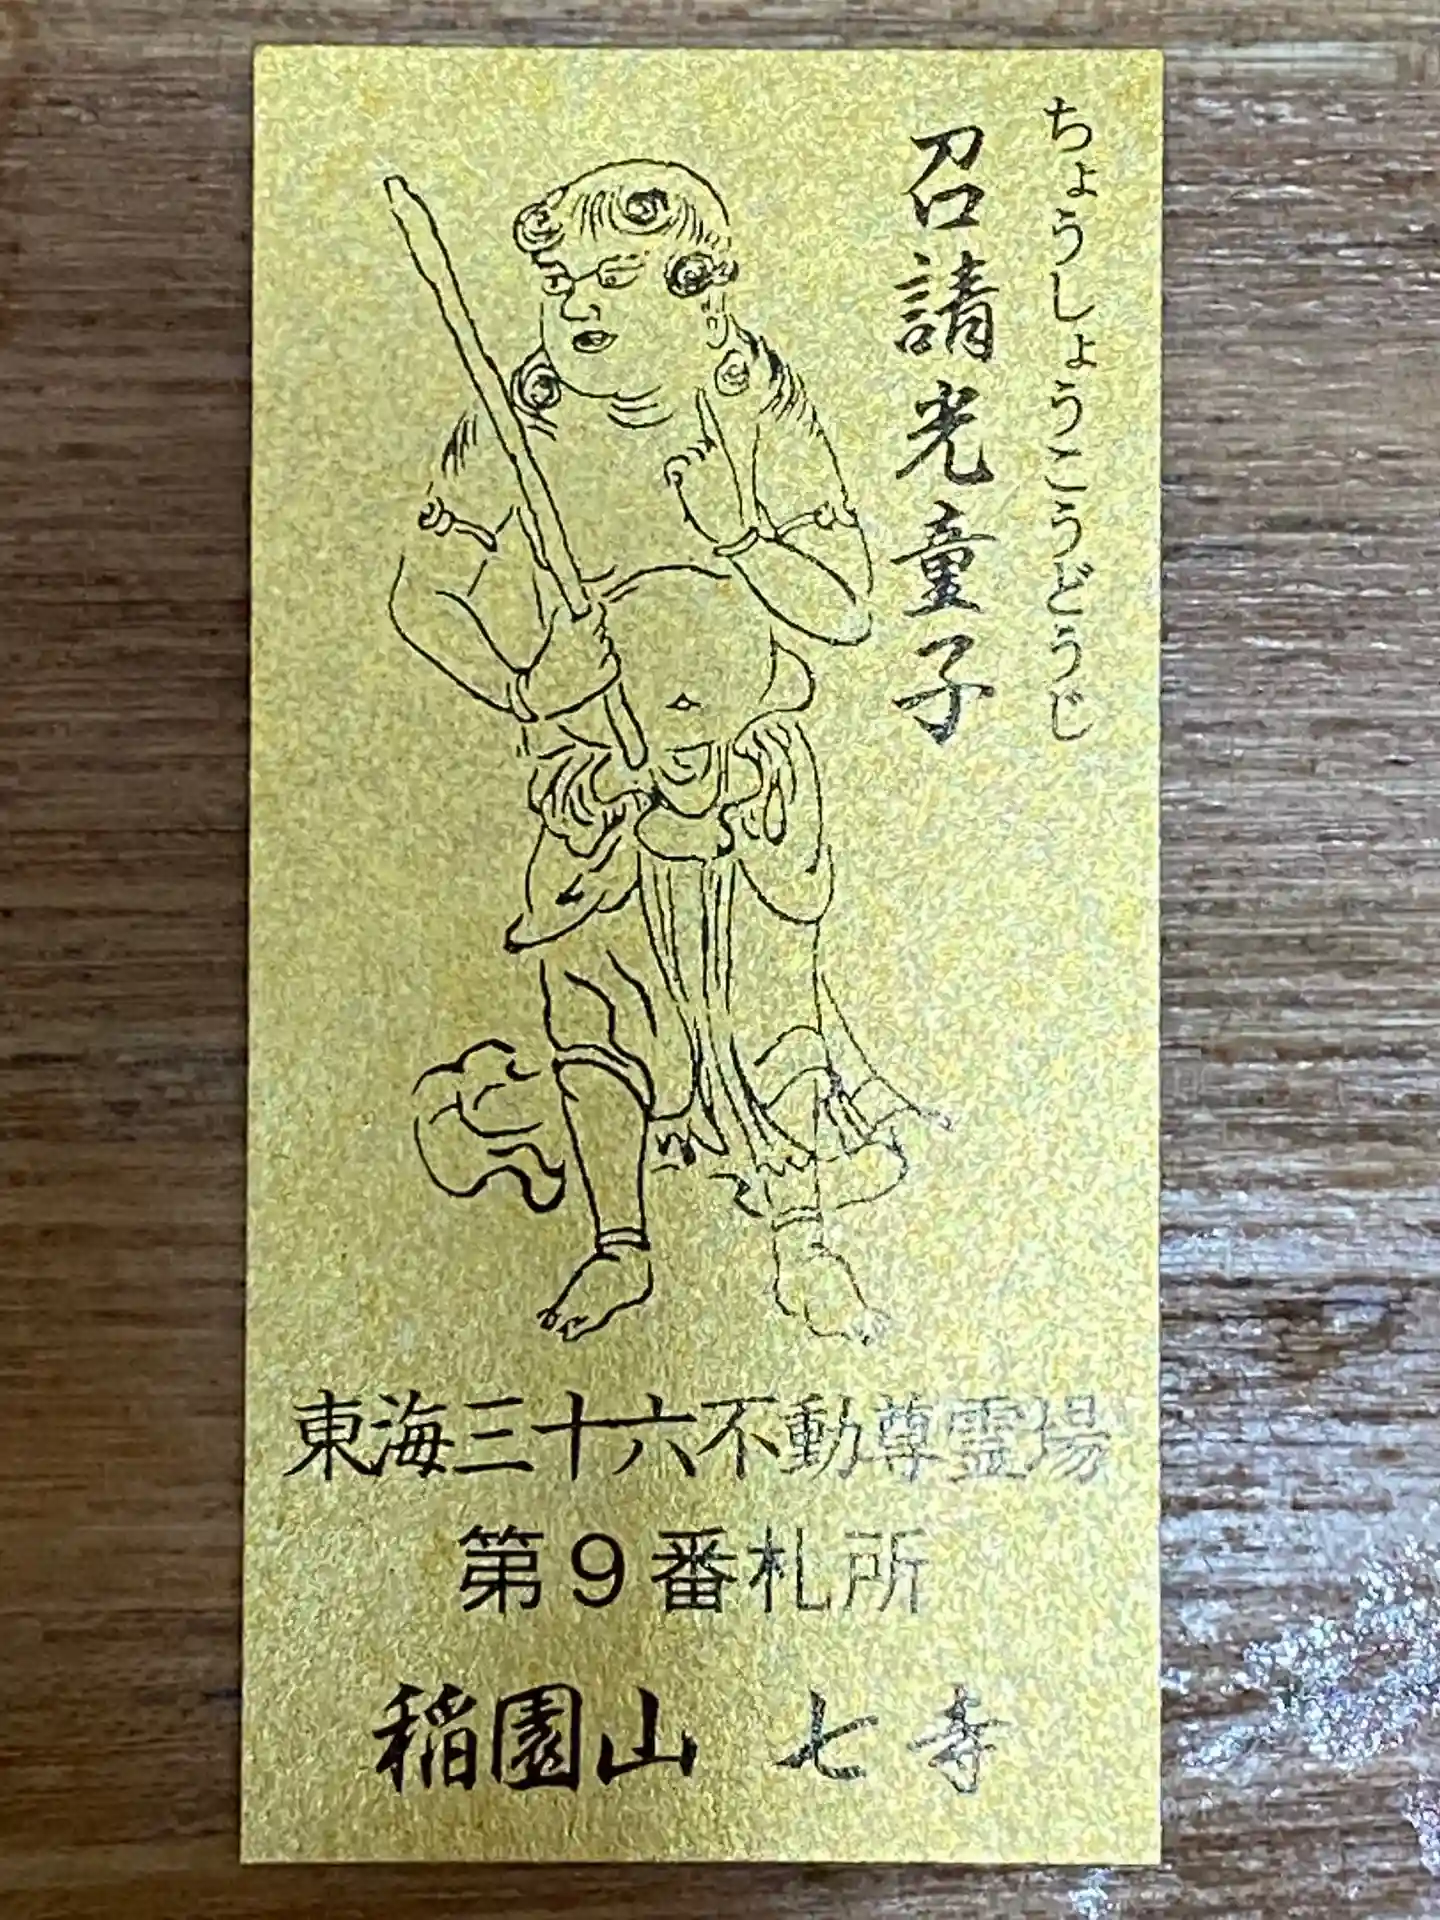 ちょうしょうこうどうじ
召請光童子
東海三十六不動尊霊場
第9番札所
稲園山 七寺